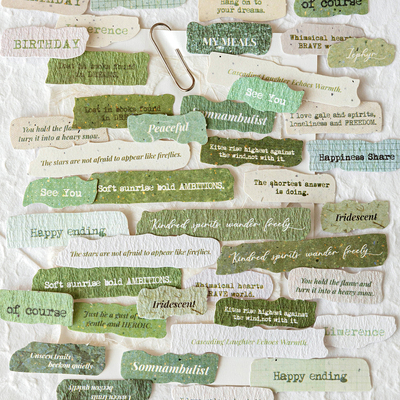 hang on to
your dreams.
of course
BIRTHDAY
MY MEALS
Whimsical hearts
BRAVE
Zephyr
Lost in books found
in
Cascading Laughter Echoes Warmth.
See You
Lost in books found
in
Somnambulist
I love gale and spirits,
loneliness and FREEDOM.
You hold the
turn it into a heavy snow.
Peaceful
Kites rise highest against
the wind, not with it.
Happiness Share
The stars are not afraid to appear like fireflies.
See You
Soft sunrise bold AMBITIONS.
The shortest answer
is doing.
Happy ending
Kindred spirits wander freely
Iridescent
The stars are not afraid to appear like fireflies.
Kindred spirits wander freely
Soft sunrise bold AMBITIONS.
Whimsical hearts
BRAVE world.
You hold the flame and
turn it into a heavy snow.
of course
Just be a gust of
gentle and HEROIC.
Iridescent
Kites rise highest against
the wind, not with it.
Cascading Laughter Echoes Warmth.
Unseen trails
beckon quietly
Somnambulist
Happy ending
beckon quietly